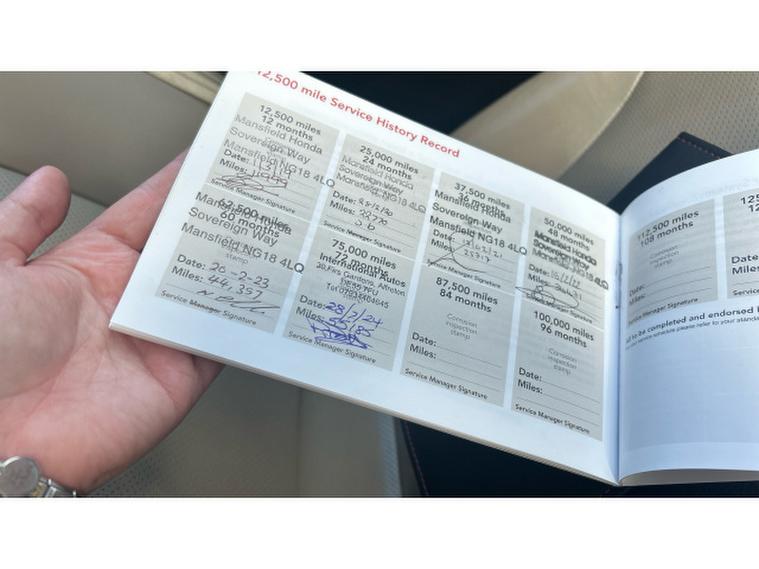 12,500 mile Service History Record
12,500 miles
12 months
Mansfield Honda
Sovereign Way
Mansfield NG18 4LQ
Date:
Miles:
Service Manager Signature
25,000 miles
24 months
Mansfield Honda
Sovereign Way
Mansfield NG18 4LQ
Date:
Miles: 22770
Service Manager Signature
37,500 miles
36 months
Mansfield Honda
Sovereign Way
Mansfield NG18 4LQ
Date:
Miles:
Service Manager Signature
50,000 miles
48 months
Mansfield Honda
Sovereign Way
Mansfield NG18 4LQ
Date:
Service Manager Signature
62,500 miles
60 months
Mansfield Honda
Sovereign Way
Mansfield NG18 4LQ
stamp
Date: 20-2-23
Miles: 44,397
Service Manager Signature
75,000 miles
72 months
International Autos
Gardens, Alfreton
Date: 28/2/24
Miles:
Service Manager Signature
87,500 miles
84 months
Corrosion
inspection
stamp
Date:
Miles:
Service Manager Signature
100,000 miles
96 months
Corrosion
inspection
stamp
Date:
Miles:
Service Manager Signature
112,500 miles
108 months
Corrosion
inspection
stamp
Date:
Miles:
Service Manager Signature
Date:
Miles
to be completed and endorsed
service schedule please refer to your